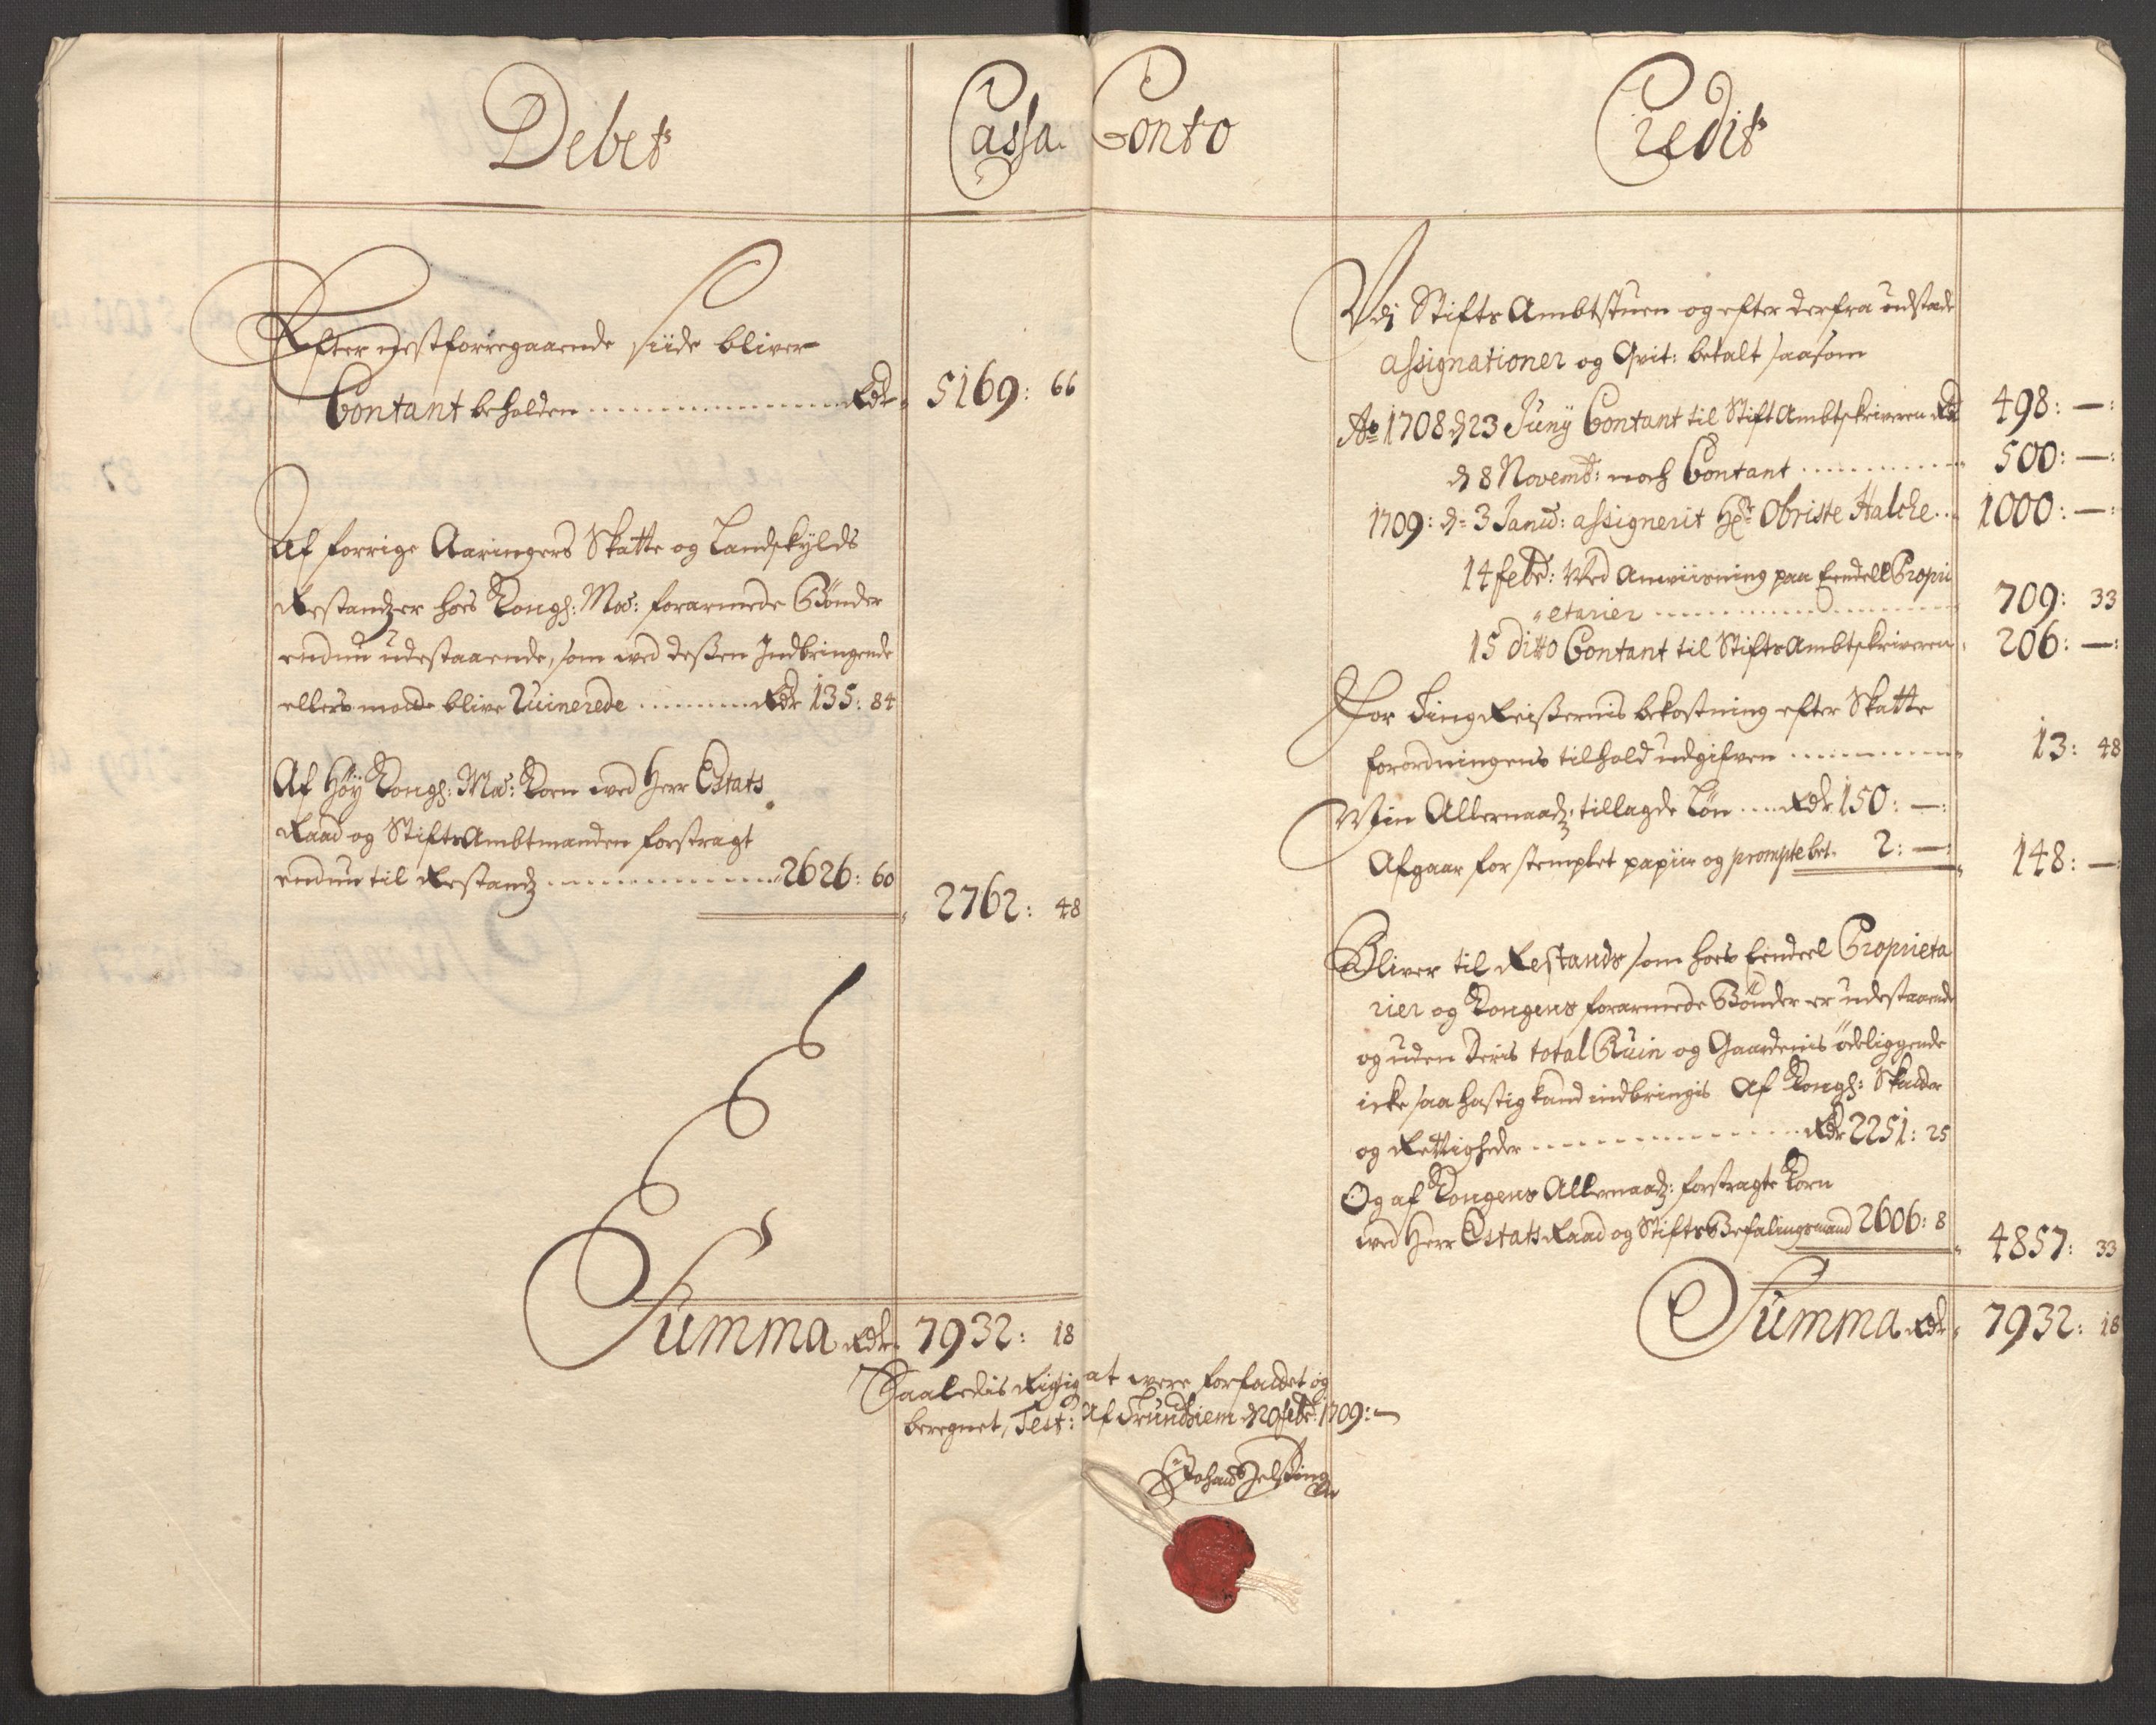 Debet
Cassa Conto
Credit
Efter nestforregaaende siide bliver
Contant beholden ... Rdr 5169: 66
Af forrige Aaringers Skatte og Landskylds
Restandzer hoes Kongl: May: forarmede Bønder
endnu udestaaende, som ved deßen Indbringende
ellers motte blive Ruinerede ... Rdr 135: 84
Af Høy Kongl: May: Korn ved Herr Estats
Raad og StiftsAmbtmanden forstragt
endnu til Restandz ... 2626: 60
2762: 48
Summa Rdr 7932: 18
Udj Stifts Ambtstuen og efter derfra udstæde
assignationer og Qvit: betalt saasom
Ao 1708 d 23 Juny Contant til StiftAmbtskriveren Rdr 498: —:
d 8 Novembr: noch Contant ... 500: —:
1709: d: 3 Janu: assignerit Hr Obriste Halche ... 1000: —:
14 febr: Ved Anviisning paa Eendell Propri
etarier ... 709: 33
15 ditto Contant til StiftsAmbtskriveren 206: —:
For TingReißernis bekostning efter Skatte
forordningens tilhold udgifven ... 13: 48
Min Allernaadz: tillagde Løn ... Rdr 150: —:
Afgaar for stemplet papiir og prompte bet. 2: —:
148: —
Bliver til Restands som hoes Eendeel Proprieta
rier og Kongens forarmede Bønder er udestaaende
og uden deris total Ruin og Gaardenis ødeliggende
icke saa hastig kand indbringis Af Kongl: Skatter
og Rettigheder ... Rdr 2251: 25
Og af Kongens Allernaadz: forstragte Korn
ved Herr Estats Raad og StiftsBefalingsmand 2606: 8
4857: 33
Summa Rdr 7932: 18
Saaledis Rigtig at være forfattet og
beregnet, Test: Af Trundhiem d 20 febr: 1709: —